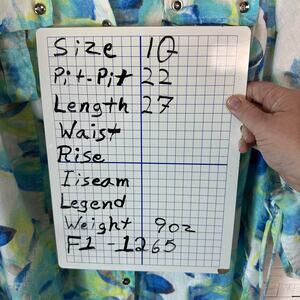 Size 10
Pit-Pit 22
Length 27
Waist
Rise
Iiseam
Legend
Weight 9oz
F1 -1265